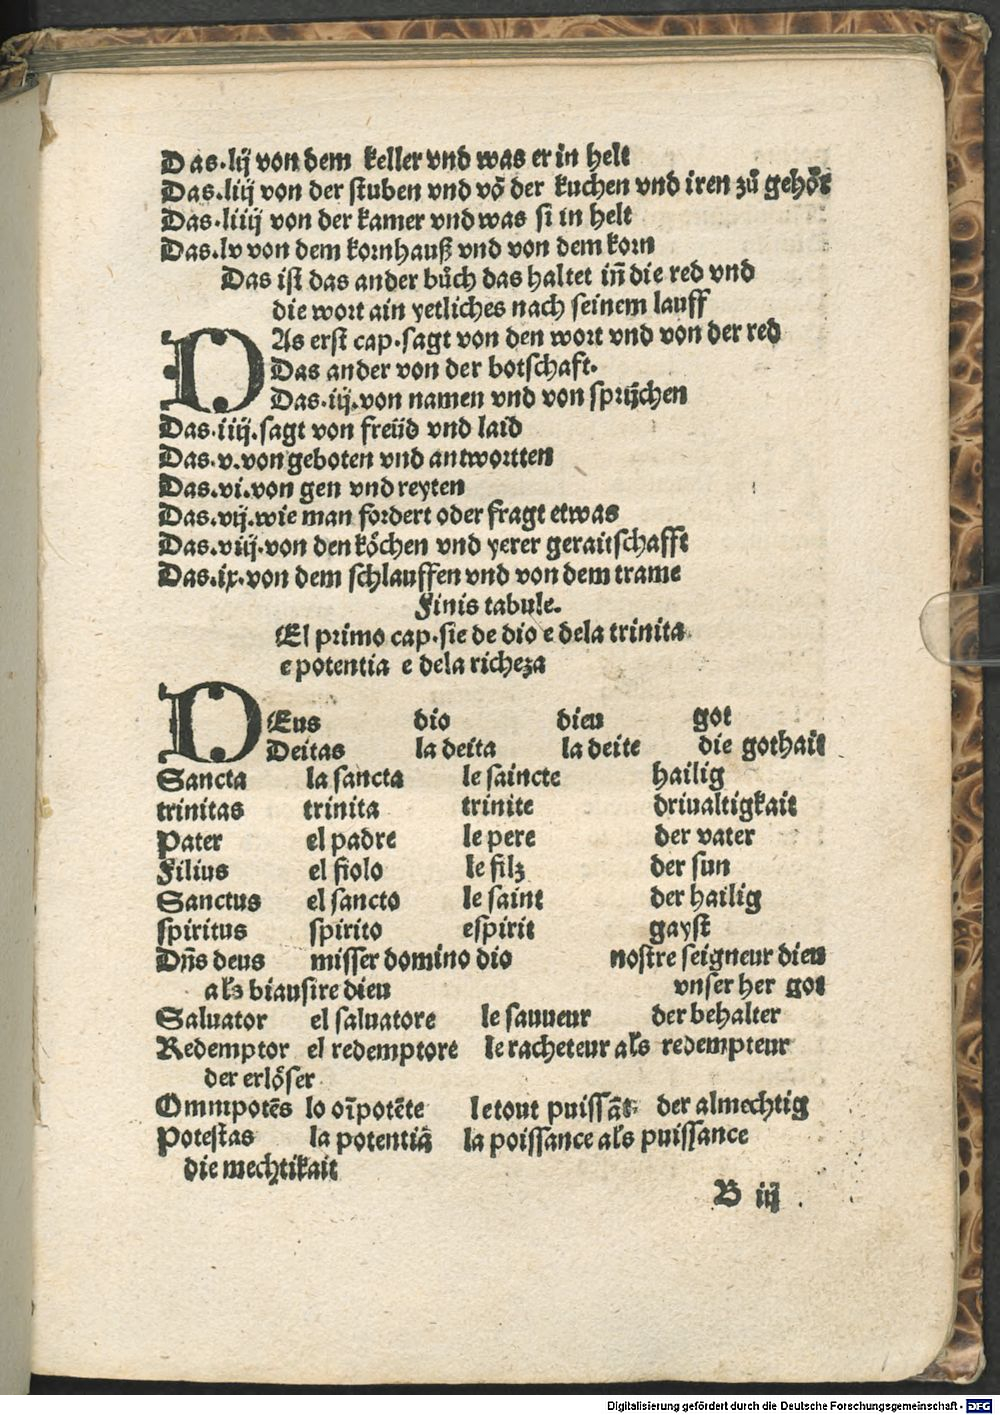 Das·lij von dem keller vnd was er in helt
Das.liij von der stuben vnd võ der kuchen vnd iren zů gehôr
Das·liiij von der kamer vnd was si in helt
Das.lv von dem kornhauß vnd von dem korn
Das ist das ander bůch das haltet iñ die red vnd
die wort ain yetliches nach seinem lauff
DAs erst cap·sagt von den wort vnd von der red
Das ander von der botschaft·
Das·iij.von namen vnd von sprüchen
Das·iiij.sagt von freüd vnd laid
Das.v.von geboten vnd antwortten
Das.vi.von gen vnd reyten
Das.vij.wie man fordert oder fragt etwas
Das.viij.von den köchen vnd yerer geraitschafft
Das.ix.von dem schlauffen vnd von dem trame
Finis tabule.
El primo cap·sie de dio e dela trinita
e potentia e dela richeza
DEus dio dieu got
Deitas la deita la deite die gothait
Sancta la sancta le saincte hailig
trinitas trinita trinite driualtigkait
Pater el padre le pere der vater
Filius el fiolo le filz der sun
Sanctus el sancto le saint der hailig
spiritus spirito espirit gayst
Dñs deus misser domino dio nostre seigneur dieu
als biausire dieu vnser her got
Saluator el saluatore le sauueur der behalter
Redemptor el redemptore le racheteur als redempteur
der erlöser
Omnipotẽs lo oĩpotẽte le tout puissãt der almechtig
Potestas la potentiã la poissance als puissance
die mechtikait
B iij
Digitalisierung gefördert durch die Deutsche Forschungsgemeinschaft - DFG